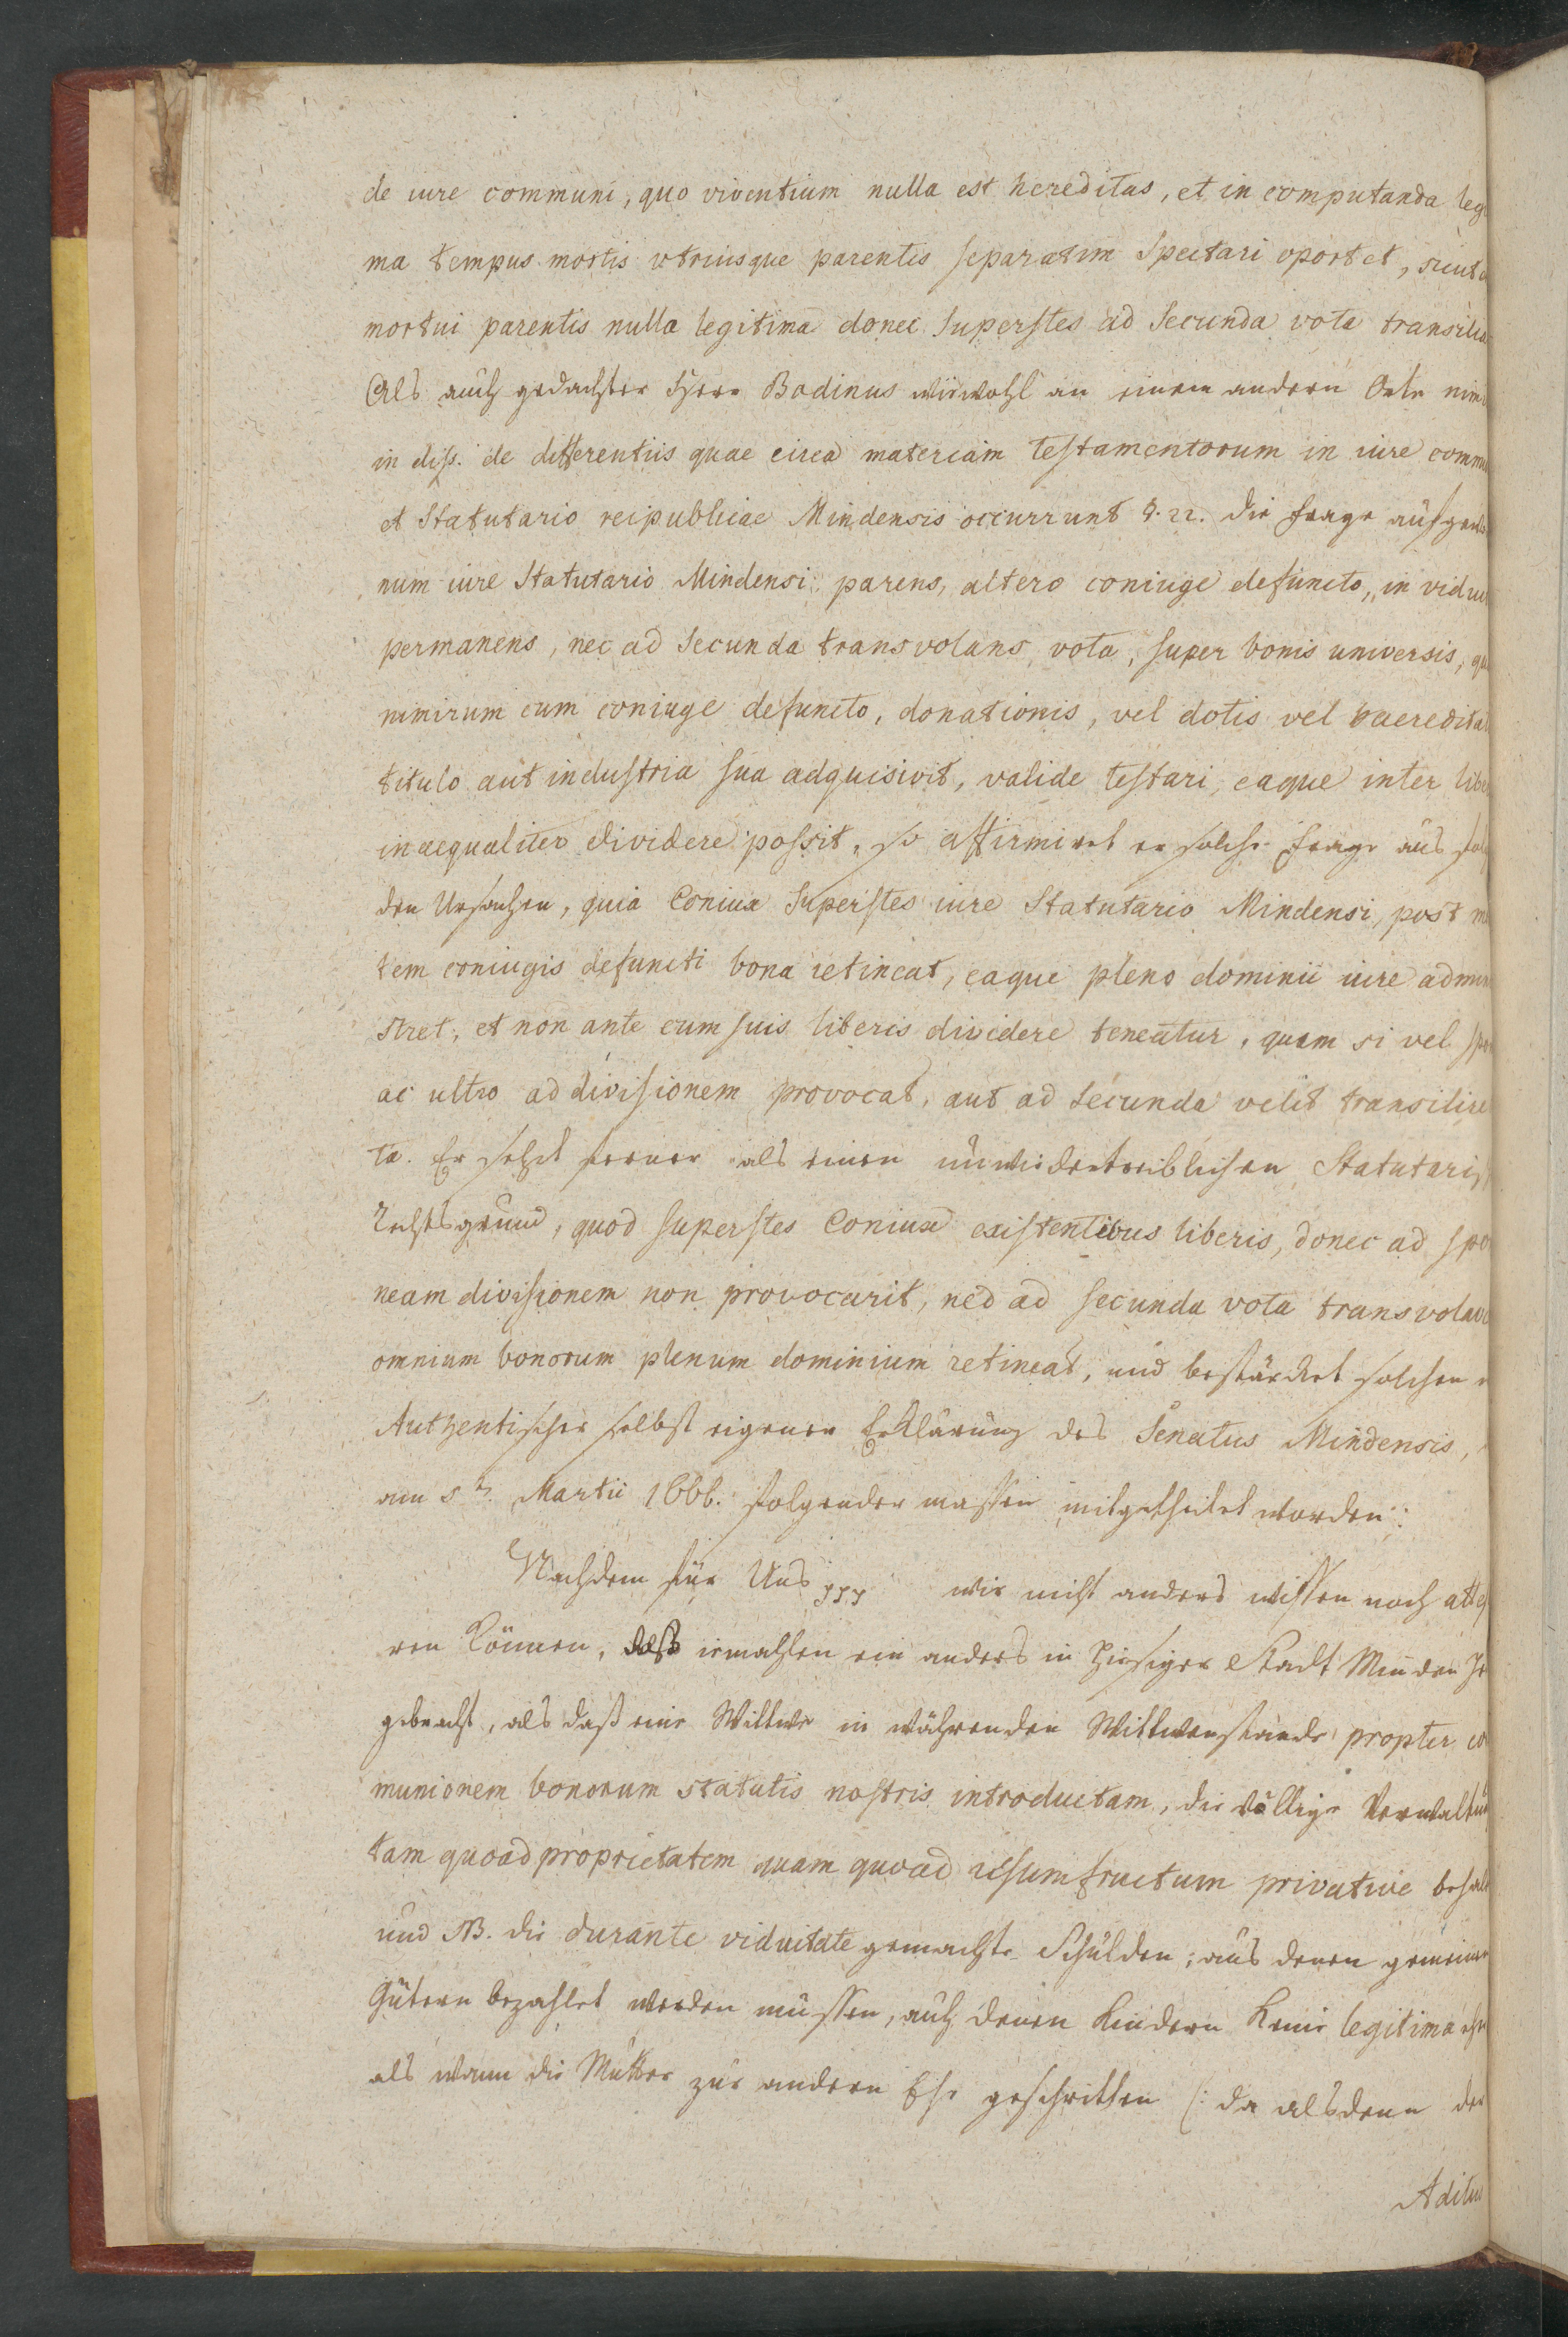 de iure communi, quo viventium nulla est hereditas, et in computanda leg
ma tempus mortis utriusque parentis separatim spectari oportet, sicut
mortui parentis nulla legitima donec superstes ad secunda vota transilia
Als auch gedachter Herr Bodinus wiewohl an einem andern Orte nim
in diss. de differentiis quae circa materiam testamentorum in iure comm
et statutario reipublicae Mindensis occurrunt §. 22. die Frage aufge
num iure statutario Mindensi parens, altero coniuge defuncto, in vidui
permanens, nec ad secunda transvolans vota, super bonis universis, qu
nimirum cum coniuge defuncto, donationis, vel dotis vel haeredita
titulo aut industria sua adquisivit, valide testari, eaque inter libe
inaequaliter dividere possit, so affirmiret er solche Frage aus fol
den Ursachen, quia Coniux superstes iure Statutario Mindensi, post m
tem coniugis defuncti bona retineat, eaque pleno dominii iure admin
stret, et non ante cum suis liberis dividere teneatur, quam si vel spo
ac ultro ad divisionem provocat, aut ad secunda velit transilire
ta. Er setzet ferner als einen unwiedertreiblichen Statutaris
Rechtsgrund, quod superstes Coniux existentibus liberis, donec ad spo
neam divisionem non provocarit, nec ad secunda vota transvolav
omnium bonorum plenum dominium retineat, und bestärcket solchen
Authentischer selbst eigener Erklärung des Senatus Mindensis,
am 5 Martii 1666. folgender massen mitgetheilet worden:
Nachdem für Uns wir nicht anders wissen noch
ren können, daß iemahlen ein anders in hiesiger Stadt Minden
gebracht, als daß eine Wittwe in währenden Wittwenstande propter co
munionem bonorum statutis nostris introductam, die völlige Verwaltun
tam quoad proprietatem quam quoad usumfructum privative behal
und NB. die durante viduitate gemachte Schulden, aus denen gemeinen
Gütern bezahlet werden müssen, auch denen Kindern keine legitima
als wann die Mutter zur andern Ehe geschritten (: da alsdenn der
Aditu